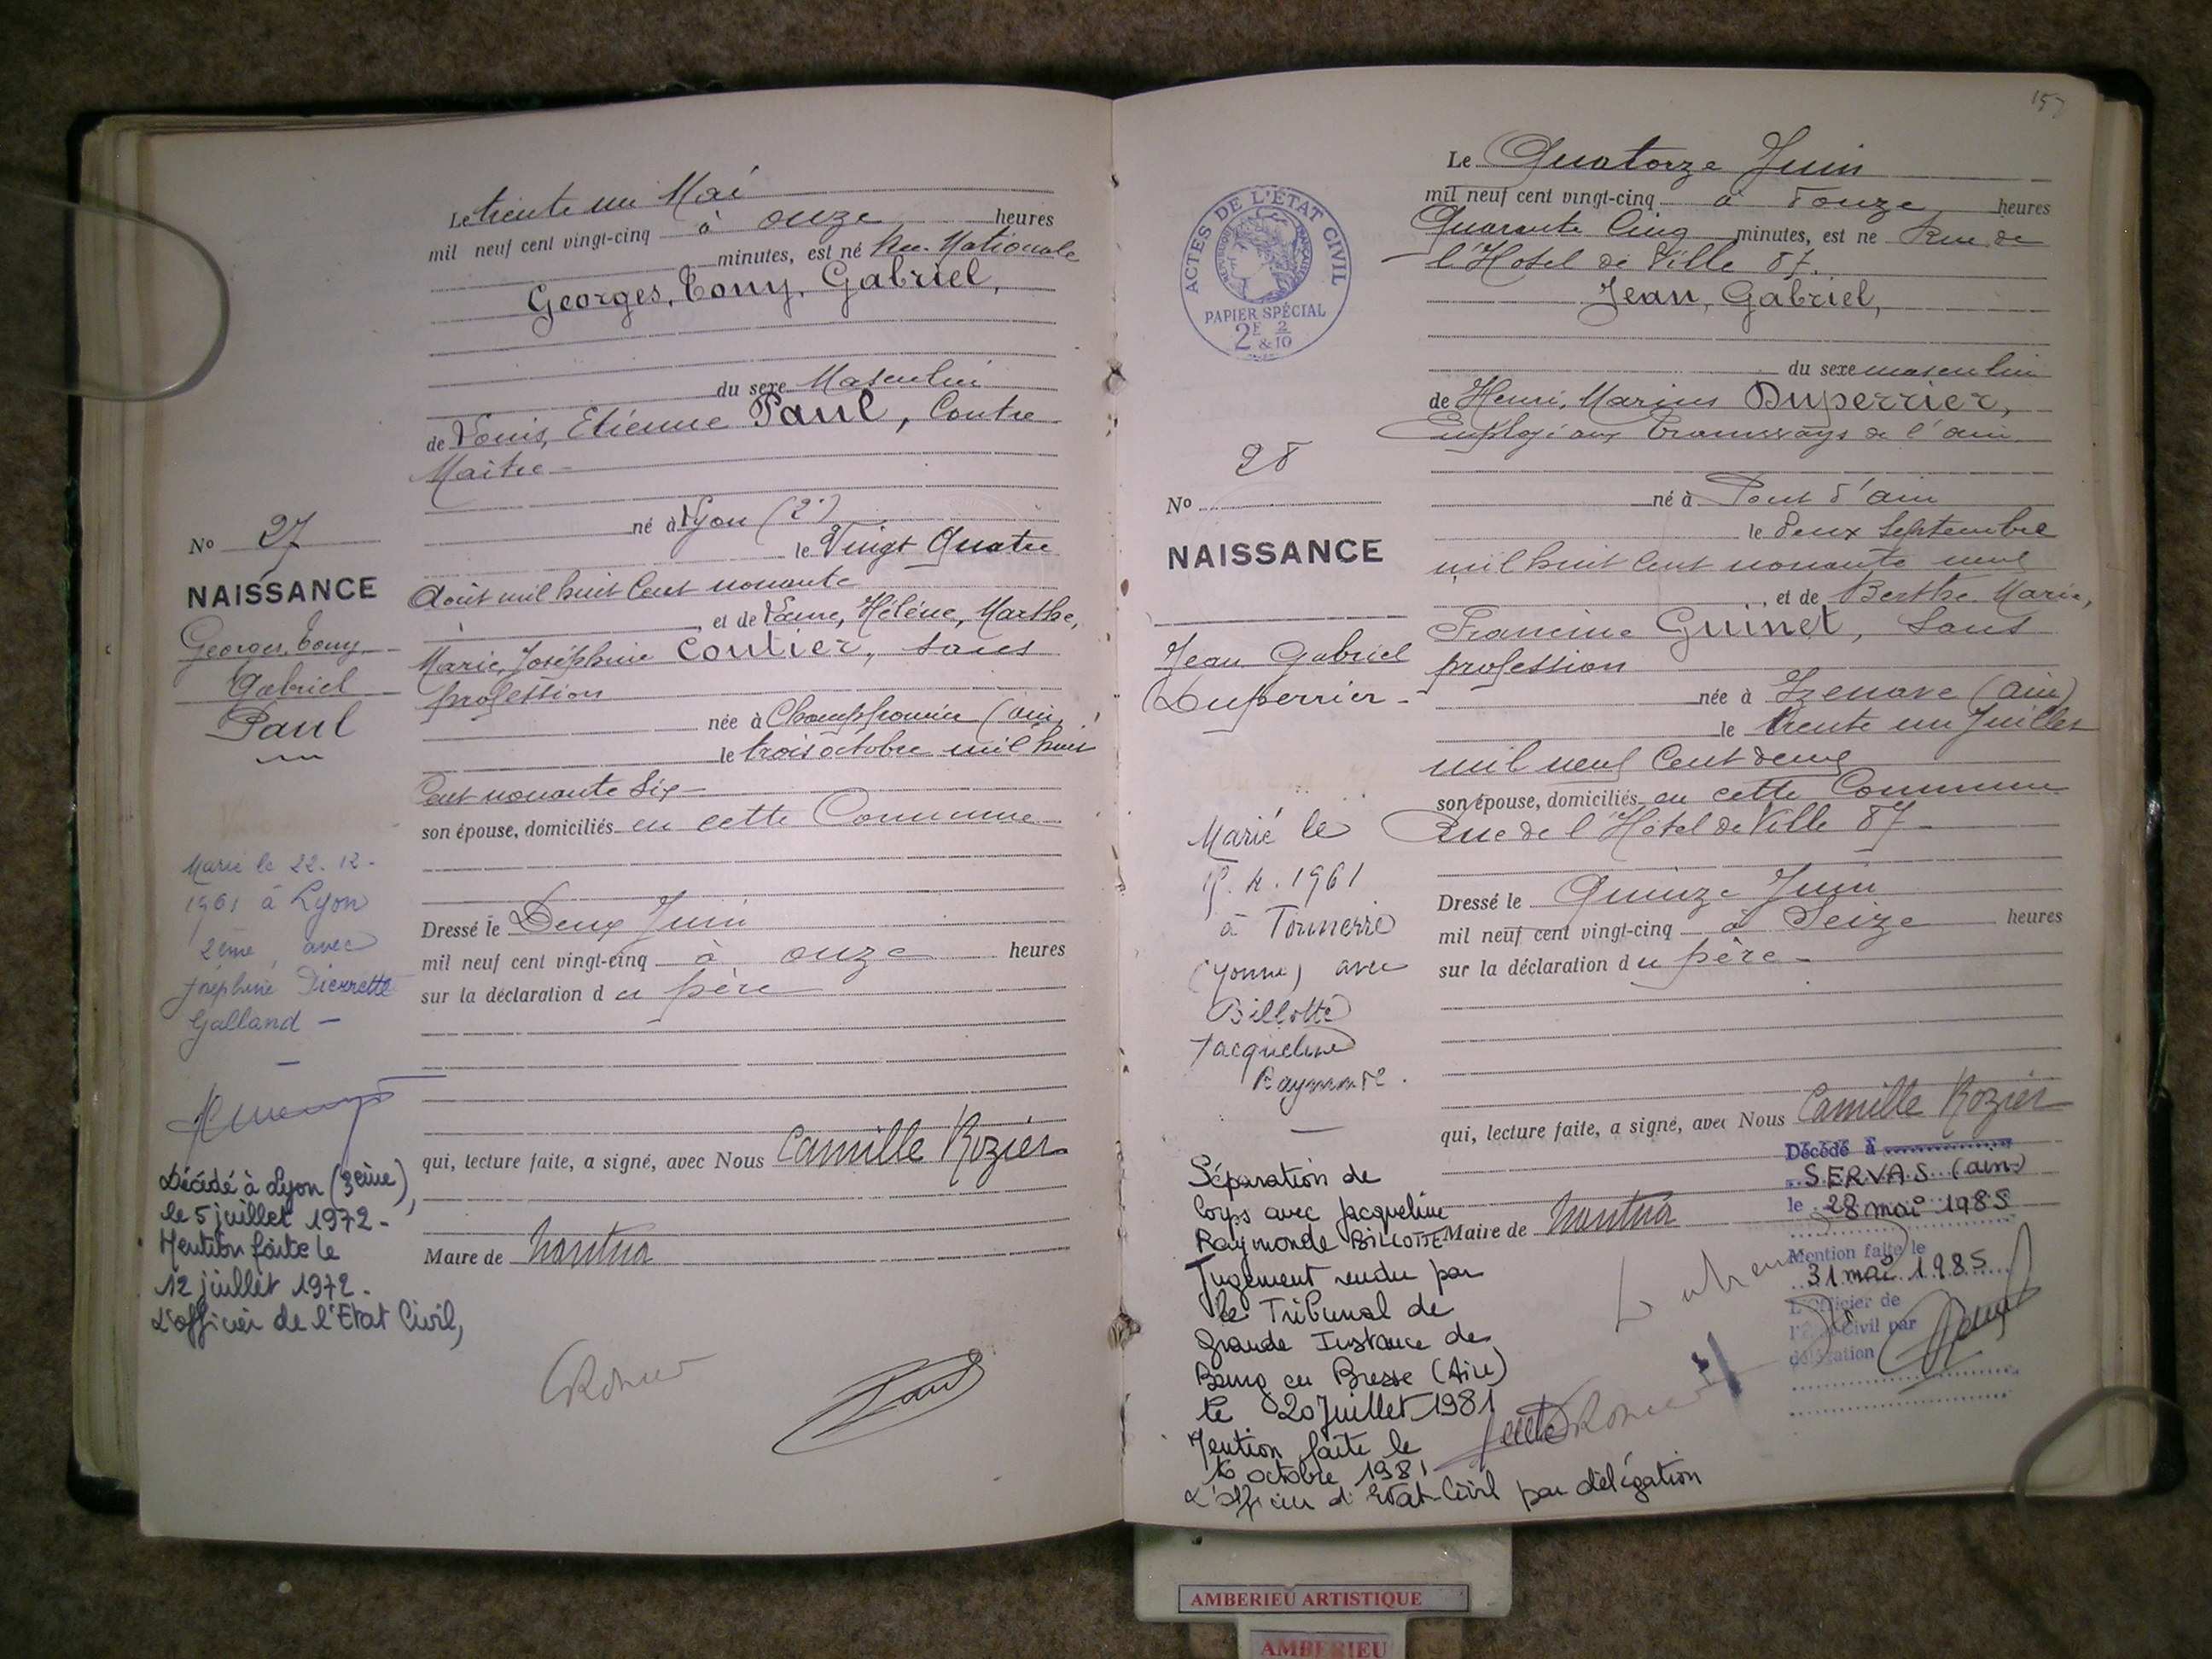 Le trente un Mai
mil neuf cent vingt-cinq à onze heures
minutes, est né Rue Nationale
Georges, Tony, Gabriel,
du sexe Masculin
de Louis, Etienne Paul, Contre
Maître
né à Lyon (2e)
le Vingt Quatre
Août mil huit cent nonante
et de Jeanne, Hélène, Marthe,
Marie, Joséphine Coutier, sans
profession
née à Champfromier (ain)
le trois octobre mil huit
Cent nonante Six
son épouse, domiciliés en cette Commune
Dressé le Deux Juin
mil neuf cent vingt-cinq à onze heures
sur la déclaration du père
qui, lecture faite, a signé, avec Nous Camille Rozier
Maire de Nantua
No 27
NAISSANCE
Georges, Tony
Gabriel
Paul
Marié le 22.12.
1961 à Lyon
2ème, avec
Joséphine Pierrette
Galland
Décédé à Lyon (3eme),
le 5 juillet 1972.
Mention faite le
12 juillet 1972.
L'officier de l'Etat Civil,
CRozier
Paul
157
ACTES DE L'ÉTAT CIVIL
RÉPUBLIQUE FRANÇAISE
PAPIER SPÉCIAL
2F 2
& 10
Le Quatorze Juin
mil neuf cent vingt-cinq à douze heures
Quarante Cinq minutes, est né Rue de
l'Hotel de Ville 87.
Jean, Gabriel,
du sexe masculin
de Henri, Marius Duperrier,
Employé aux Tramways de l'ain
né à Pont d'ain
le deux Septembre
mil huit cent nonante neuf
, et de Berthe, Marie,
Francine Guinet, Sans
profession
née à Izenave (ain)
le trente un Juillet
mil neuf cent deux
son épouse, domiciliés en cette Commune
Rue de l'Hôtel de Ville 87
Dressé le Quinze Juin
mil neuf cent vingt-cinq à Seize heures
sur la déclaration du père
qui, lecture faite, a signé, avec Nous Camille Rozier
Maire de Nantua
No 28
NAISSANCE
Jean Gabriel
Duperrier
Marié le
1961
à Tonnerre
(Yonne) avec
Billotte
Jacqueline
Raymonde.
Séparation de
Corps avec Jacqueline
Raymonde BILLOTTE
Jugement rendu par
le Tribunal de
Grande Instance de
Bourg en Bresse (Ain)
le 20 Juillet 1981
Mention faite le
16 octobre 1981
L'officier d'Etat-Civil par délégation
Décédé à
SERVAS (ain)
le 28 mai 1985
Mention faite le
31 mai 1985
L'Officier de
l'État Civil par
délégation
AMBERIEU ARTISTIQUE
AMBERIEU